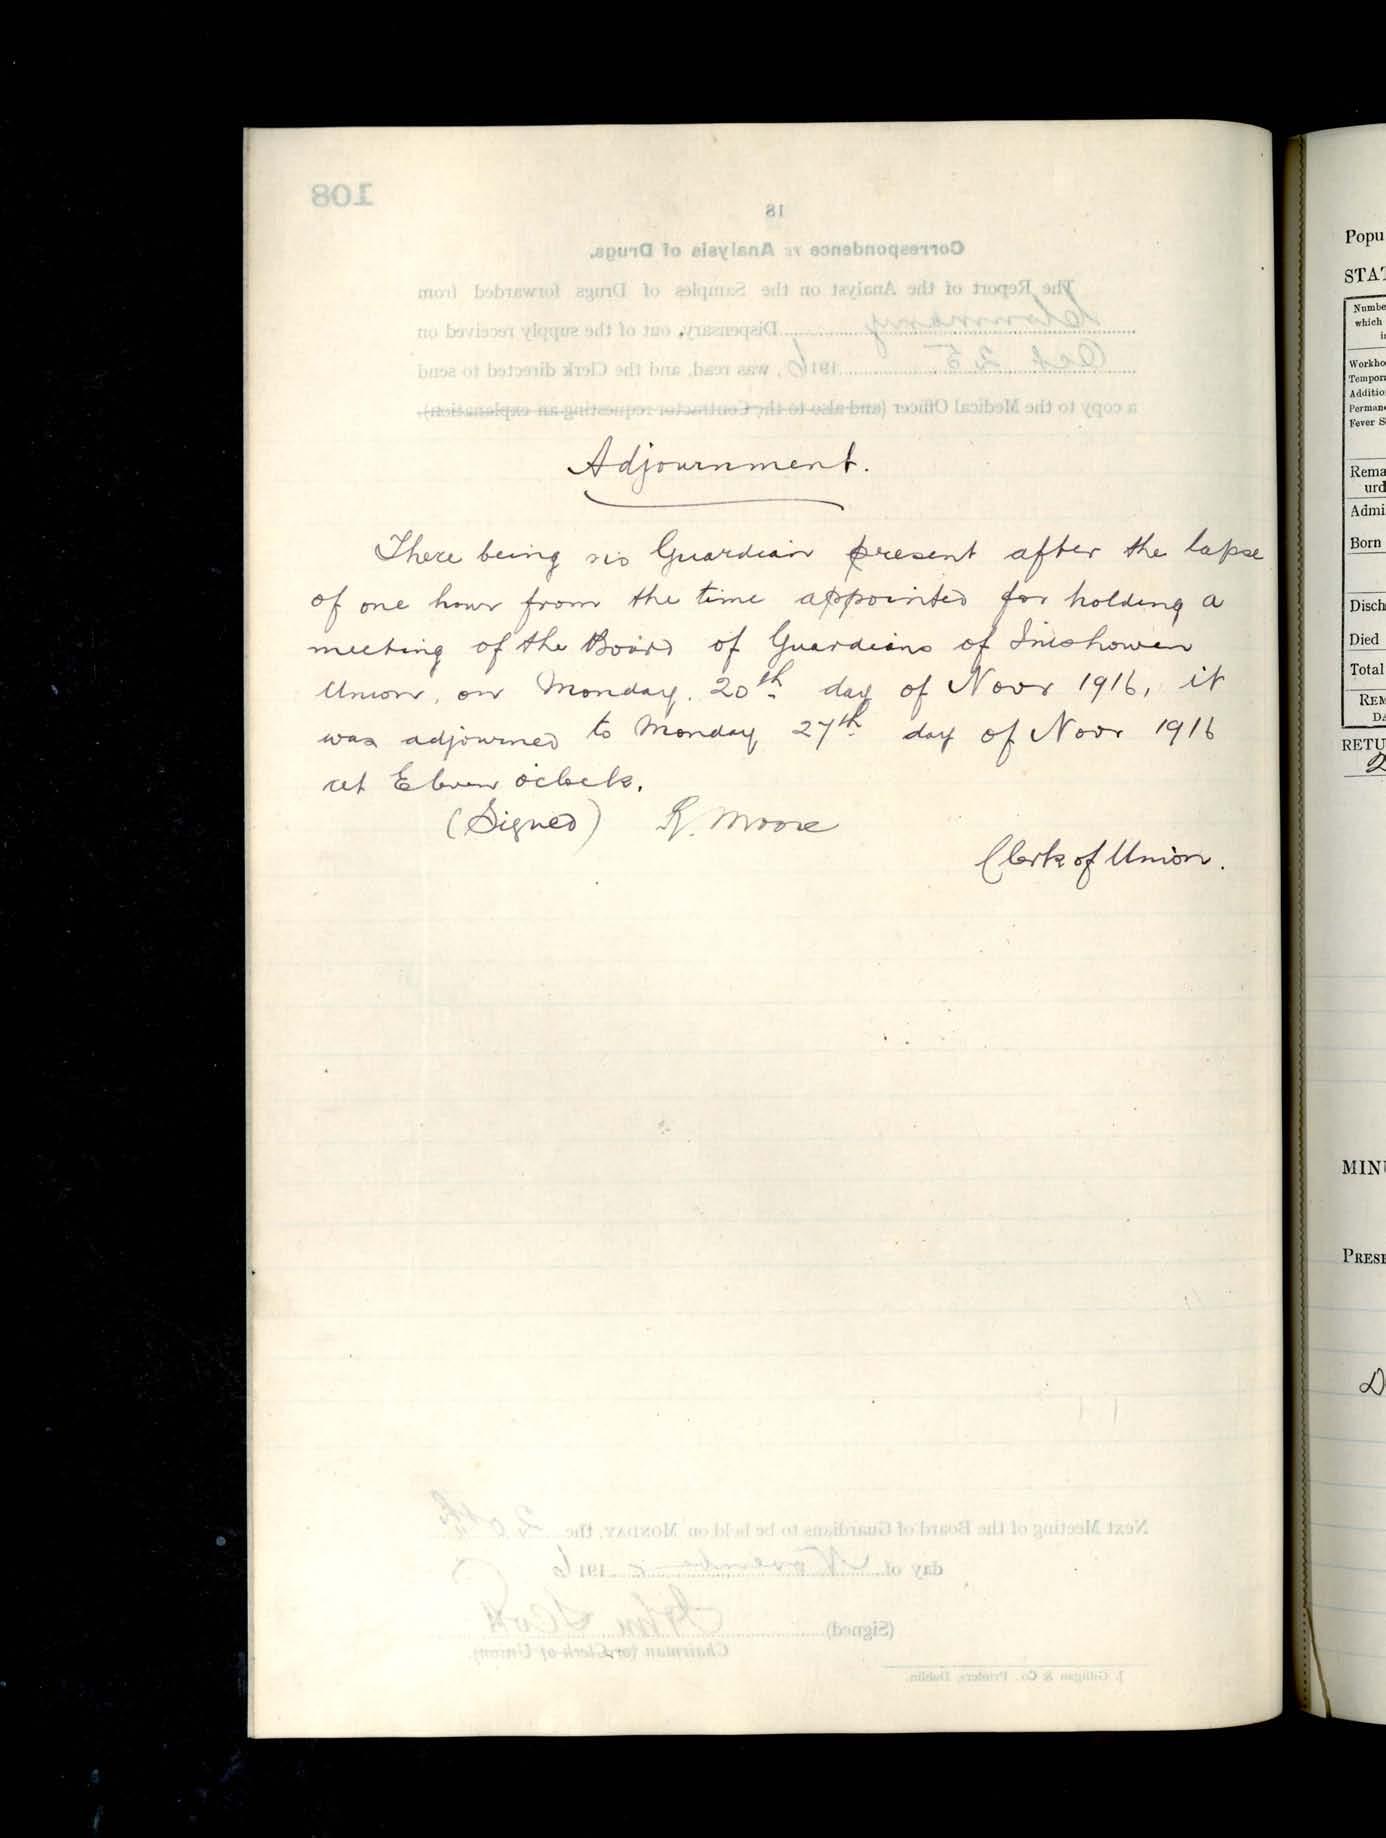 Adjournment.
There being no Guardian present after the lapse
of one hour from the time appointed for holding a
meeting of the Board of Guardians of Inishowen
Union, on Monday, 20th day of Novr 1916, it
was adjourned to Monday 27th day of Novr 1916
at Eleven o'clock.
(Signed) R. Moore
Clerk of Union.
108
18
Correspondence re Analysis of Drugs.
The Report of the Analyst on the Samples of Drugs forwarded from
Clonmany Dispensary, out of the supply received on
Oct 25 1916, was read, and the Clerk directed to send
a copy to the Medical Officer (and also to the Contractor requesting an explanation).
Next Meeting of the Board of Guardians to be held on MONDAY, the 20th
day of November 1916
(Signed) John Scott
Chairman (or Clerk of Union)
J. Gilligan & Co. Printers, Dublin.
Popu
STAT
Numbe
which
in
Workho
Tempora
Additio
Permane
Fever S
Rema
urd
Admi
Born
Disch
Died
Total
REM
DA
RETU
MINU
PRESE